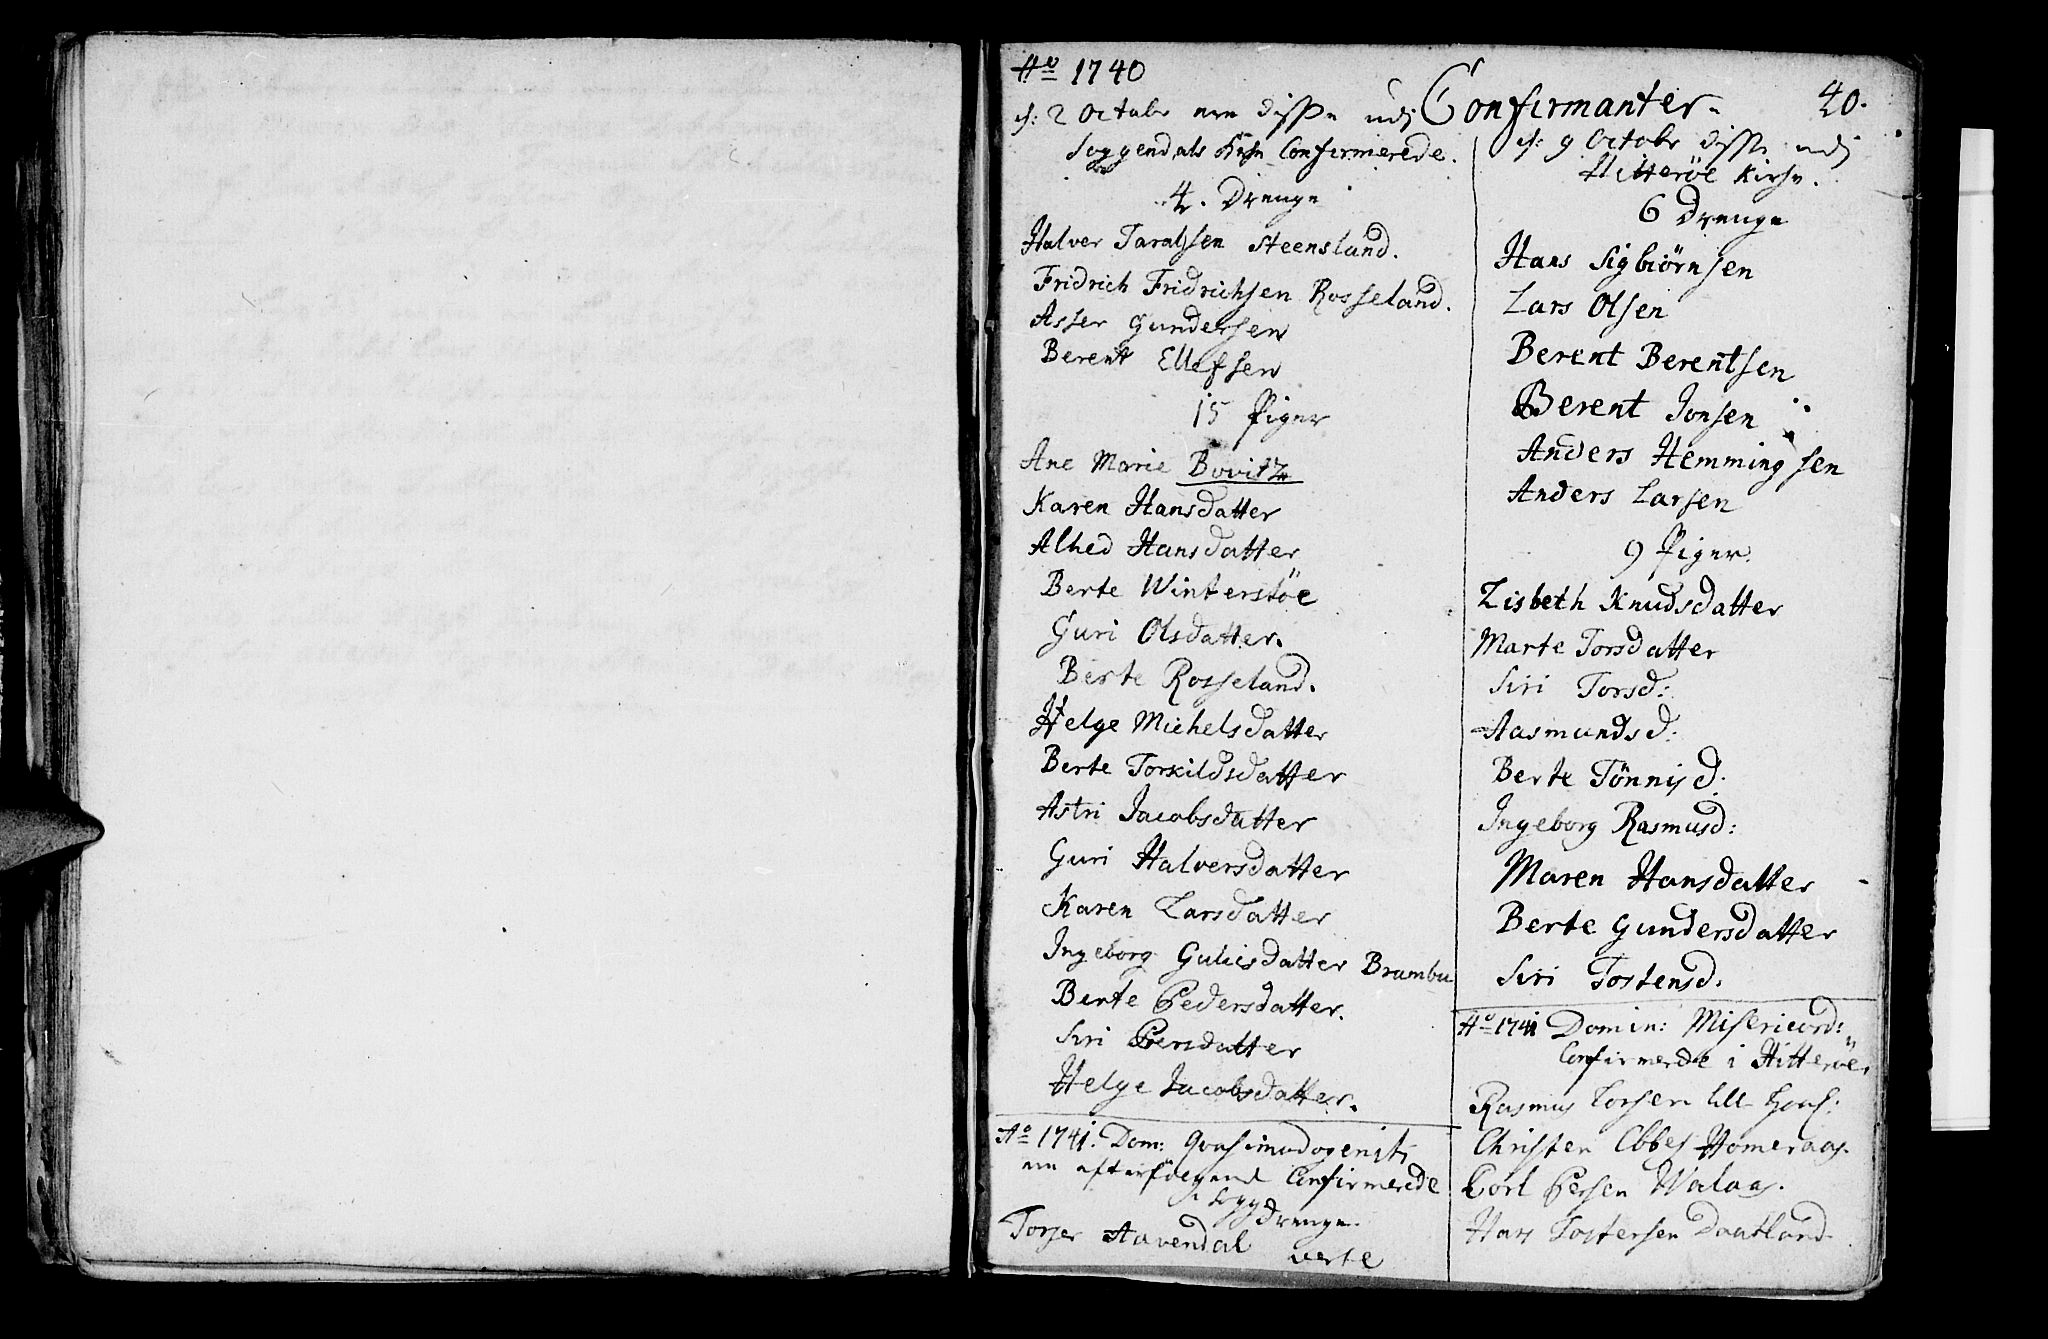 Aō 1740
Confirmanter.
40.
d: 2 Octobr ere disse udj
Soggendals Kirke Confirmerede.
4. Drenge
Halver Taralsen Steensland.
Fridrich Fridrichsen Rosseland.
Asser Gundersen
Berent Ellefsen
15 Piger
Ane Marie Bovitz
Karen Hansdatter
Alhed Hansdatter
Berte Winterstöe
Guri Olsdatter.
Berte Rosseland.
Helge Michelsdatter
Berte Torkildsdatter
Astri Jacobsdatter
Guri Halversdatter
Karen Larsdatter
Ingeborg Guliesdatter Brambu
Berte Pedersdatter.
Siri Persdatter
Helge Jacobsdatter.
Aō 1741. Dom: Quasimodogenit:
ere efterfölgend Confirmerede
i Sogg
Drenge.
Torjer Aavendal
verte
d: 9 Octobr disse udj
Hitteröe Kirke.
6 Drenge
Hans Sigbiörnsen
Lars Olsen
Berent Berentsen
Berent Jonsen
Anders Hemmingsen
Anders Larsen
9 Piger.
Lisbeth Knudsdatter
Marte Torsdatter
Siri Torsd:
Aasmundsd:
Berte Tönnisd:
Ingeborg Rasmusd:
Maren Hansdatter
Berte Gundersdatter
Siri Tostensd.
Aō 1741 Domin: Misericord:
Confirmerede i Hitteröe.
Rasmus Torsen
Christen Ebbes Homeraas.
Corl Persen Walaas.
Hans Tostensen Daatland.